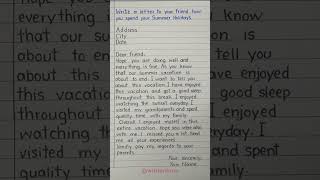 Write a letter to your friend how
you spend your Summer Holidays.
Address
City
Date
Dear friend,
Hope you are doing well and
everything is fine. As you know
that our summer vacation is
about to end. I want to tell you
about this vacation. I have enjoyed
this vacation and got a good sleep
throughout this break. I enjoyed
watching the sunset everyday. I
visited my grandparents and spent
quality time with my family.
Overall I enjoyed myself in this
entire vacation. Hope you were also
with me. I missed you a lot. Send
me all your experiences.
Lastly, pay my regards to your
parents.
Your sincerely,
Your Name.